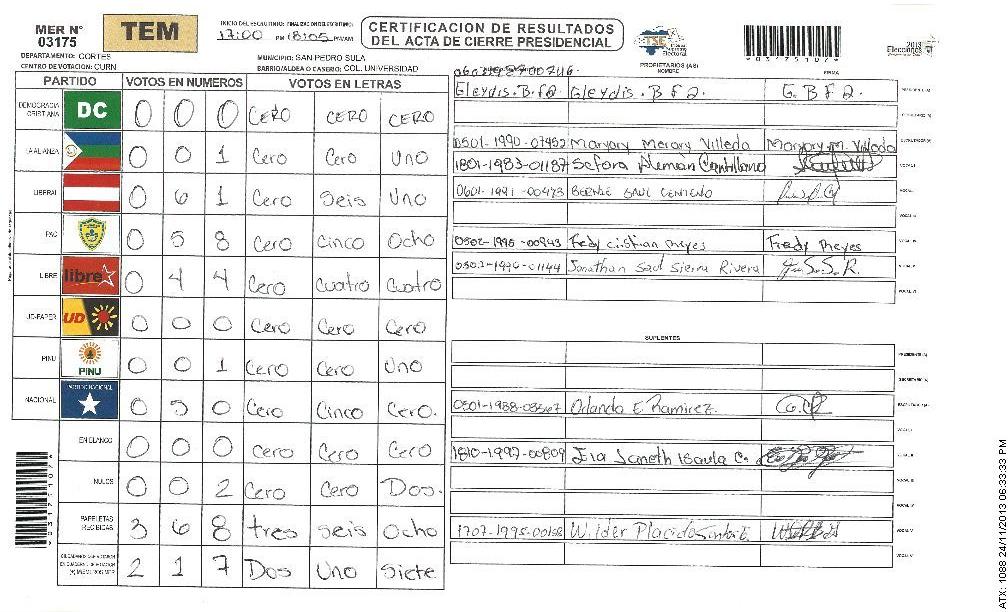 MER N° 03175
TEM
INICIO DEL ESCRUTINIO: FINALIZACION DEL ESCRUTINIO:
17:00 PM 18:05 PM/AM
CERTIFICACION DE RESULTADOS
DEL ACTA DE CIERRE PRESIDENCIAL
TSE
2013
Elecciones
*03175107*
DEPARTAMENTO: CORTES
MUNICIPIO: SAN PEDRO SULA
CENTRO DE VOTACION: CURN
BARRIO/ALDEA O CASERIO: COL. UNIVERSIDAD
PROPIETARIOS (AS)
NOMBRE
FIRMA
PARTIDO VOTOS EN NUMEROS VOTOS EN LETRAS
DEMOCRACIA CRISTIANA DC 0 0 0 CERO CERO CERO
LA ALIANZA 0 0 1 Cero Cero Uno
LIBERAL 0 6 1 Cero Seis Uno
PAC 0 5 8 Cero Cinco Ocho
LIBRE libre 0 4 4 Cero Cuatro Cuatro
UD-FAPER UD 0 0 0 Cero Cero Cero
PINU PINU 0 0 1 Cero Cero Uno
NACIONAL PARTIDO NACIONAL 0 5 0 Cero Cinco Cero.
EN BLANCO 0 0 0 Cero Cero Cero
NULOS 0 0 2 Cero Cero Dos.
PAPELETAS RECIBIDAS 3 6 8 tres seis Ocho
2 1 7 Dos Uno Siete
Gleydis. B. F. G. B F
PRESIDENTE (A)
SECRETARIO (A)
0501-1990-07452 Maryory Merary Villeda Maryory M. Villeda
ESCRUTADOR (A)
1801-1983-01187 Sefora Alemán Cantillano
VOCAL I
0601-1991-00473
VOCAL II
VOCAL III
0502-1995-00943 Fredy cristian Reyes Fredy Reyes
VOCAL IV
Jonathan Saul Sierra Rivera J. S. S. R.
VOCAL V
VOCAL VI
SUPLENTES
PRESIDENTE (A)
SECRETARIO (A)
Orlando E Ramirez.
ESCRUTADOR (A)
VOCAL I
1810-1992-00809 Janeth Isaula C.
VOCAL II
VOCAL III
VOCAL IV
Wilder Placido
VOCAL V
VOCAL VI
ATX: 1088 24/11/2013 06:33:33 PM